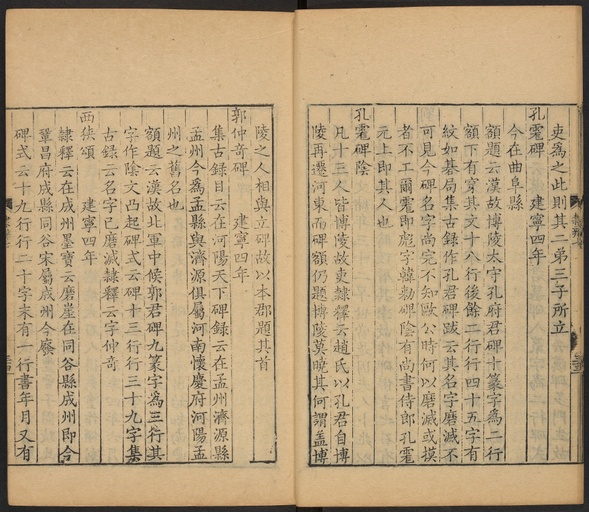 吏為之此則其二弟三子所立
孔霍碑　建寧四年
今在曲阜縣
額題云漢故博陵太守孔府君碑十篆字為二行
額下有穿其文十八行後餘二行行四十五字有
紋如碁局集古錄作孔君碑跋云其名字磨滅不
可見今碑名字尚完不知歐公時何以磨滅或摸
者不工爾霍即彪字韓勑碑陰有尚書侍郎孔霍
元上即其人也
孔霍碑陰
凡十三人皆博陵故吏隸釋云趙氏以孔君自博
陵再遷河東而碑額仍題博陵莫曉其何謂盖博
陵之人相與立碑故以本郡題其首
郭仲奇碑　建寧四年
集古錄目云在河陽天下碑錄云在孟州濟源縣
孟州今為孟縣與濟源俱屬河南懷慶府河陽孟
州之舊名也
額題云漢故北軍中候郭君碑九篆字為三行其
字作陰文凸起碑式云十三行行三十九字集
古錄云名字已磨滅隸釋云字仲奇
西狹頌　建寧四年
隸釋云在成州墨寶云磨崖在同谷縣成州即今
鞏昌府成縣同谷宋屬成州今廢
碑式云十九行行二十字末有一行書年月又有